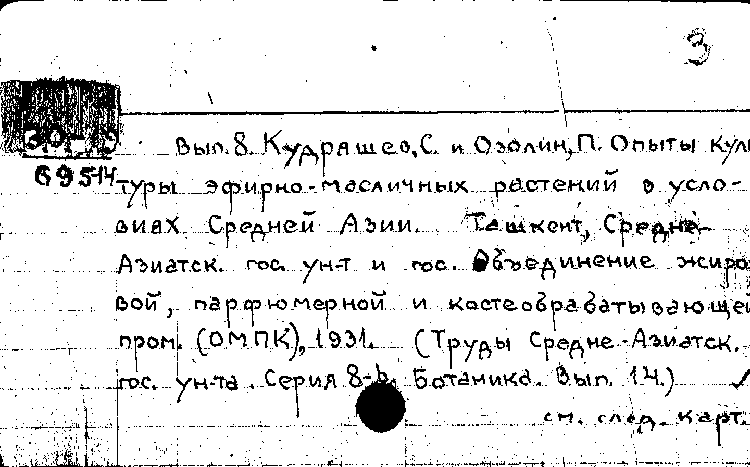 3
30-19
69514
Вып. 8. Кудряшев, С. и Озолин, П. Опыты куль
туры эфирно-масличных растений в усло-
виях Средней Азии. Ташкент, Средне-
Азиатск. гос. ун-т и гос. Объединение жиро
вой, парфюмерной и костеобрабатывающей
пром. (ОМПК), 1931. (Труды Средне-Азиатск.
гос. ун-та. Серия 8-b. Ботаника. Вып. 14.) ✓
см. след. карт.